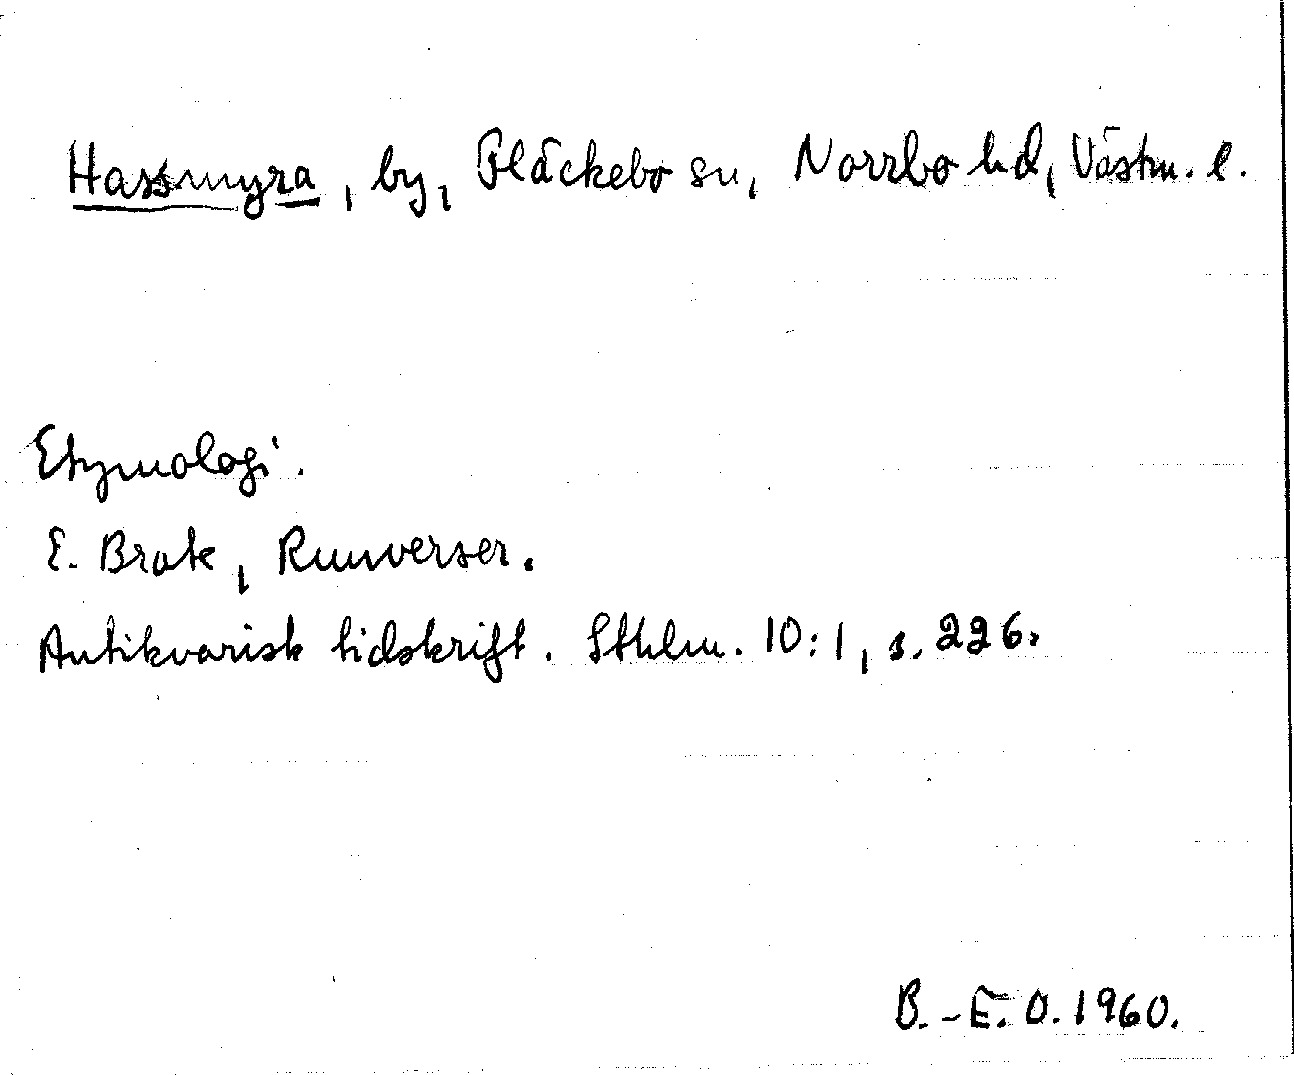 Hassmyra, by, Fläckebo sn, Norrbo hd, Västm. l.
Etymologi.
E. Brate, Runverser.
Antikvarisk tidskrift. Sthlm. 10:1, s. 226.
B.-E. O. 1960.